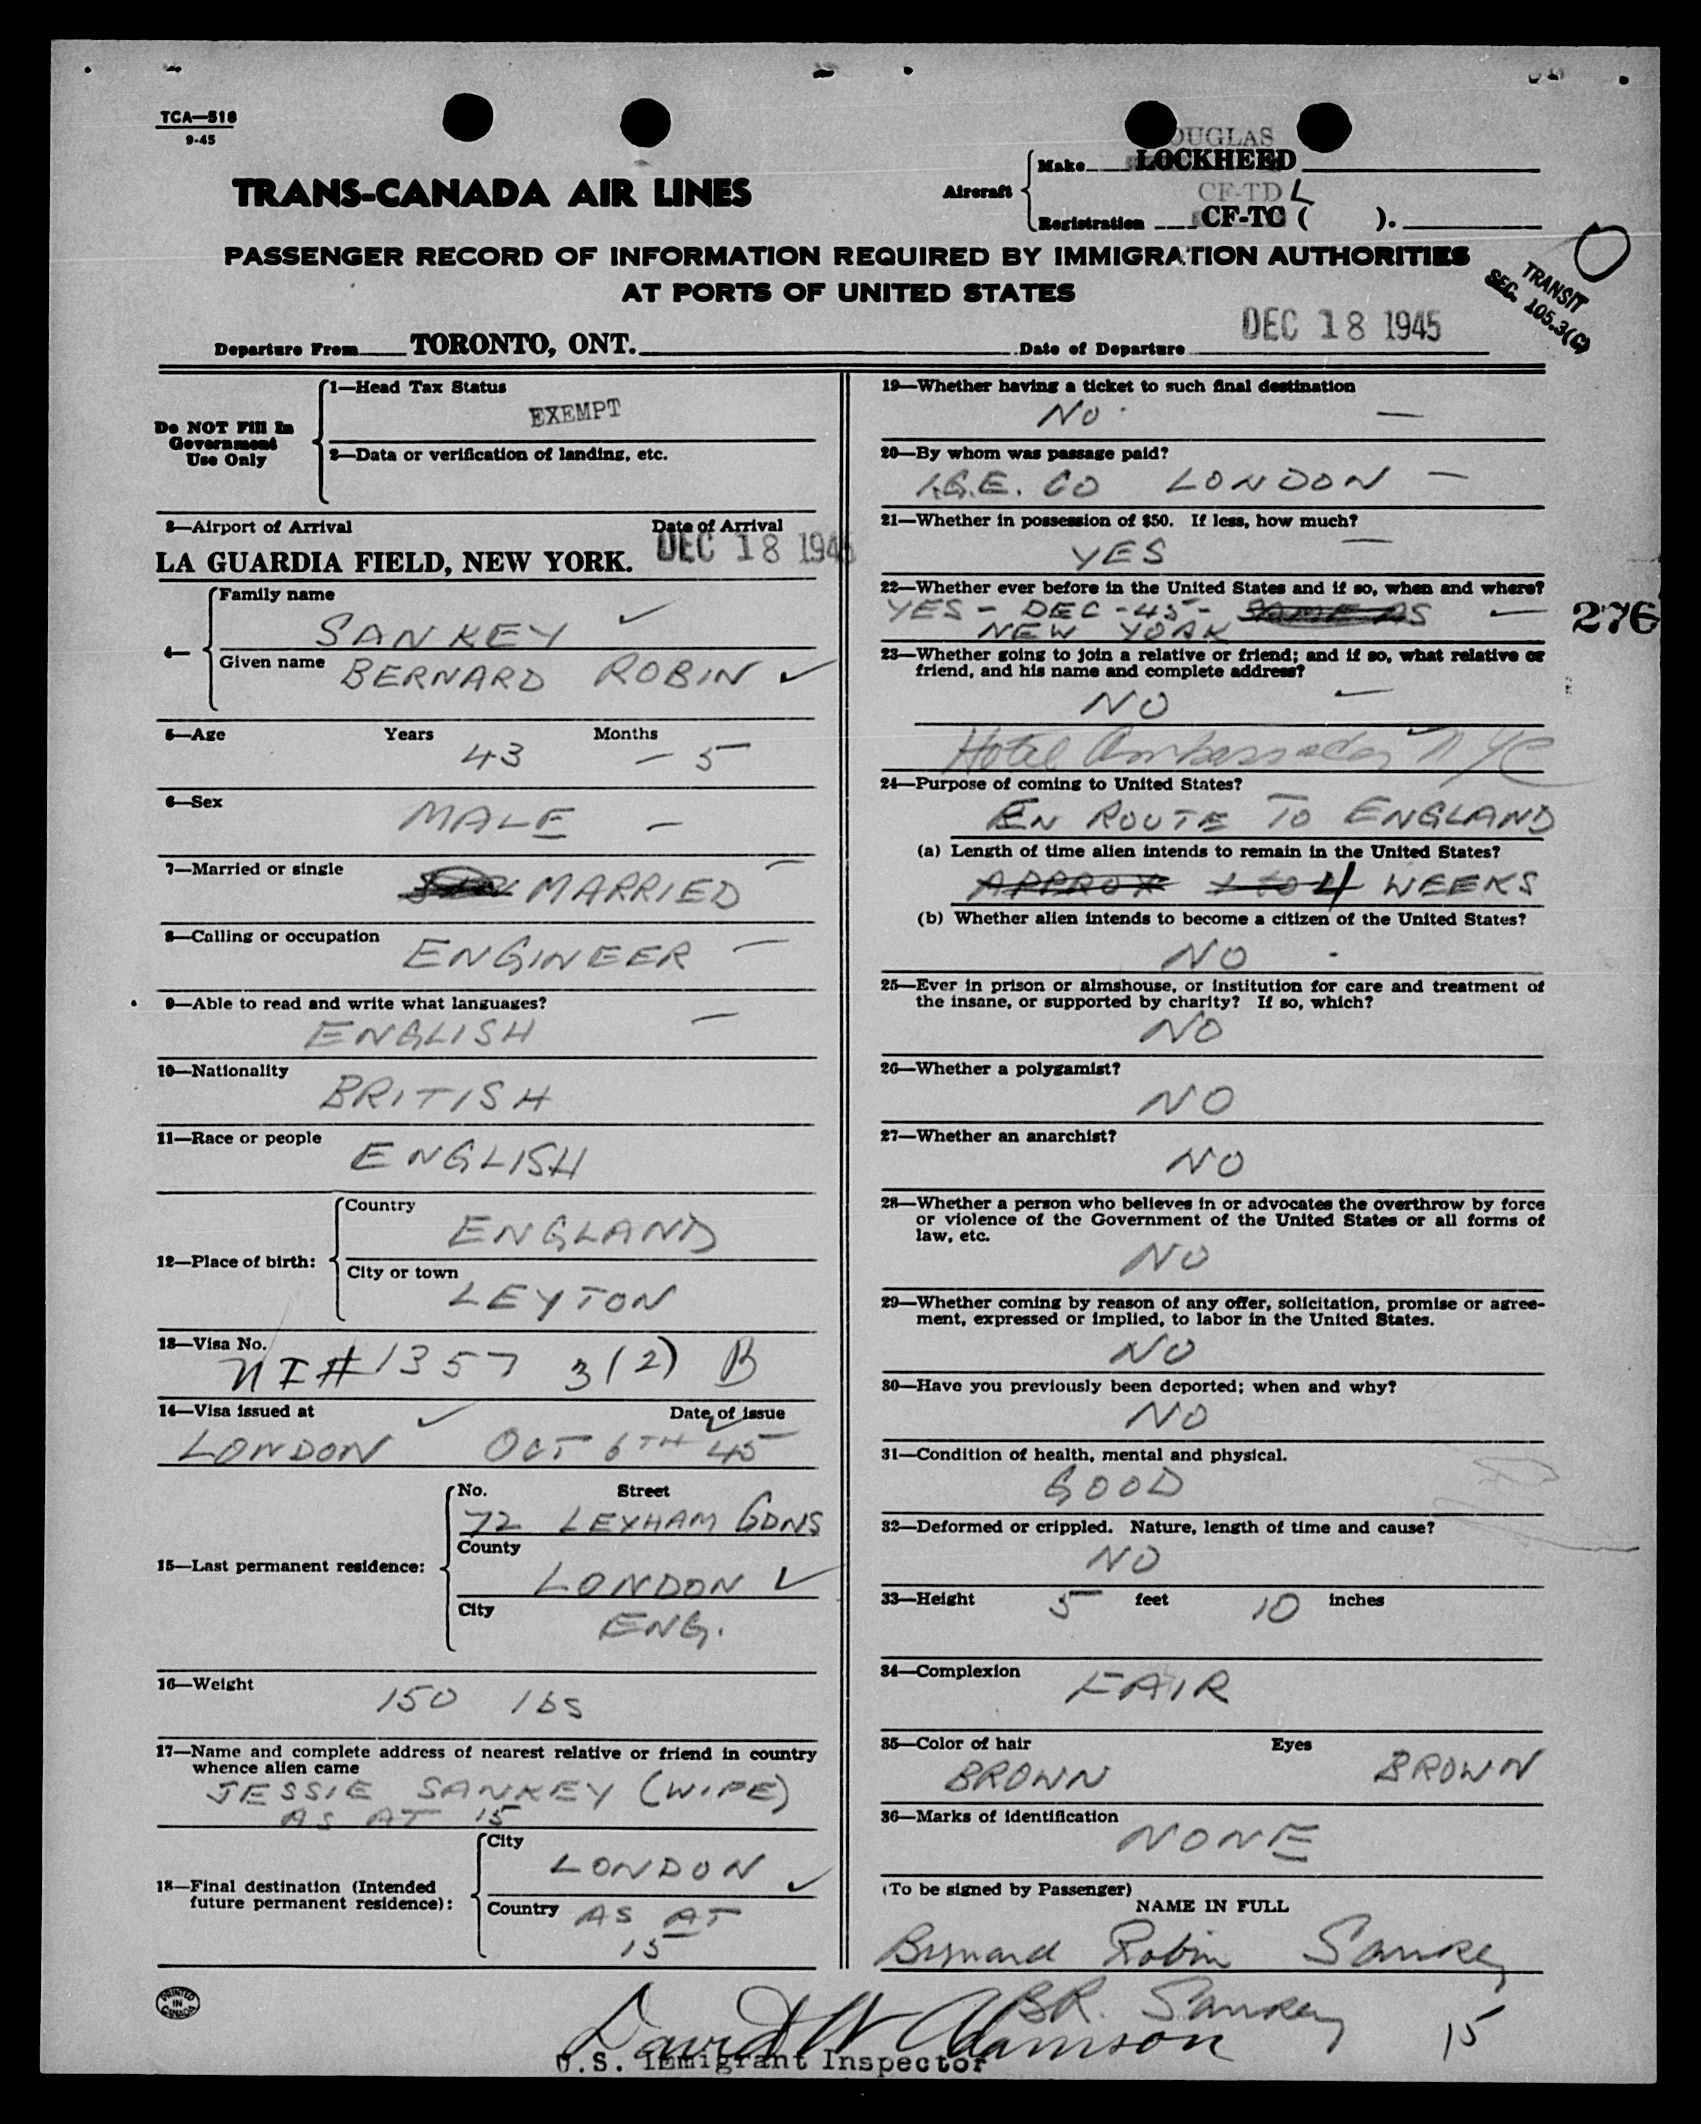 TCA—518
9-45
TRANS-CANADA AIR LINES
Aircraft
DOUGLAS
Make LOCKHEED
CF-TD L
Registration CF-TC ( ).
PASSENGER RECORD OF INFORMATION REQUIRED BY IMMIGRATION AUTHORITIES
AT PORTS OF UNITED STATES
TRANSIT
SEC. 105.3(C)
Departure From TORONTO, ONT. Date of Departure DEC 18 1945
Do NOT Fill In
Government
Use Only
1—Head Tax Status
EXEMPT
2—Data or verification of landing, etc.
3—Airport of Arrival Date of Arrival
LA GUARDIA FIELD, NEW YORK. DEC 18 1945
4—
Family name
SANKEY
Given name BERNARD ROBIN
5—Age Years Months
43 – 5
6—Sex
MALE –
7—Married or single
MARRIED
8—Calling or occupation
ENGINEER –
9—Able to read and write what languages?
ENGLISH –
10—Nationality
BRITISH
11—Race or people
ENGLISH
12—Place of birth:
Country
ENGLAND
City or town
LEYTON
13—Visa No.
NI# 1357 3(2) B
14—Visa issued at Date of issue
LONDON OCT 6TH 45
15—Last permanent residence:
No. Street
72 LEXHAM GDNS
County
LONDON
City
ENG.
16—Weight
150 lbs
17—Name and complete address of nearest relative or friend in country
whence alien came
JESSIE SANKEY (WIFE)
AS AT 15
18—Final destination (Intended
future permanent residence):
City
LONDON
Country AS AT
15
PRINTED
IN
CANADA
19—Whether having a ticket to such final destination
NO –
20—By whom was passage paid?
I.G.E. CO LONDON –
21—Whether in possession of $50. If less, how much?
YES –
22—Whether ever before in the United States and if so, when and where?
YES – DEC - 45 – SAME AS
NEW YORK
276
23—Whether going to join a relative or friend; and if so, what relative or
friend, and his name and complete address?
NO
Hotel Ambassador NYC
24—Purpose of coming to United States?
EN ROUTE TO ENGLAND
(a) Length of time alien intends to remain in the United States?
APPROX 1 to 4 WEEKS
(b) Whether alien intends to become a citizen of the United States?
NO
25—Ever in prison or almshouse, or institution for care and treatment of
the insane, or supported by charity? If so, which?
NO
26—Whether a polygamist?
NO
27—Whether an anarchist?
NO
28—Whether a person who believes in or advocates the overthrow by force
or violence of the Government of the United States or all forms of
law, etc.
NO
29—Whether coming by reason of any offer, solicitation, promise or agree-
ment, expressed or implied, to labor in the United States.
NO
30—Have you previously been deported; when and why?
NO
31—Condition of health, mental and physical.
GOOD
32—Deformed or crippled. Nature, length of time and cause?
NO
33—Height 5 feet 10 inches
34—Complexion
FAIR
35—Color of hair Eyes
BROWN BROWN
36—Marks of identification
NONE
(To be signed by Passenger)
NAME IN FULL
Bernard Robin Sankey
B.R. Sankey
15
David W Adamson
U.S. Immigrant Inspector